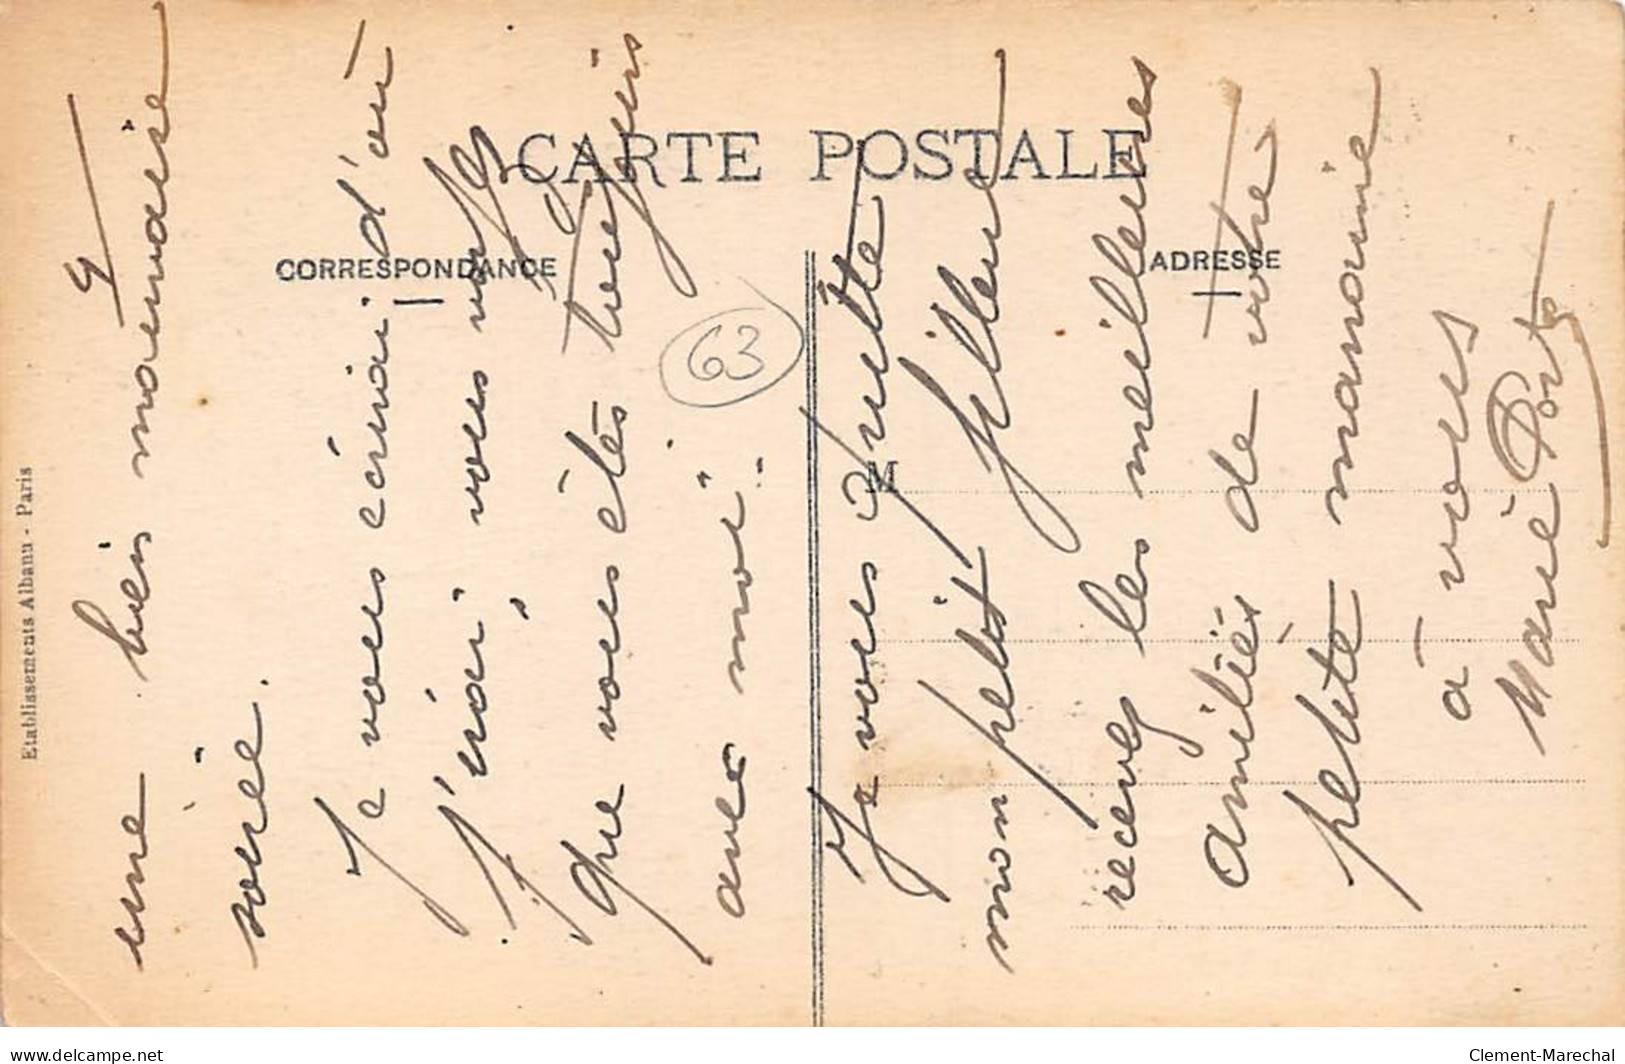 CARTE POSTALE
CORRESPONDANCE
ADRESSE
M
Etablissements Albanu - Paris
63
une bien mauvaise
soirée.
Je vous écrirai d'où
j'irai, vous
que vous êtes toujours
avec moi..
Je vous quitte
mon petit filleul
recevez les meilleures
amitiés de votre
petite maramie
à vous
Marie
delcampe.net
Clement-Marechal